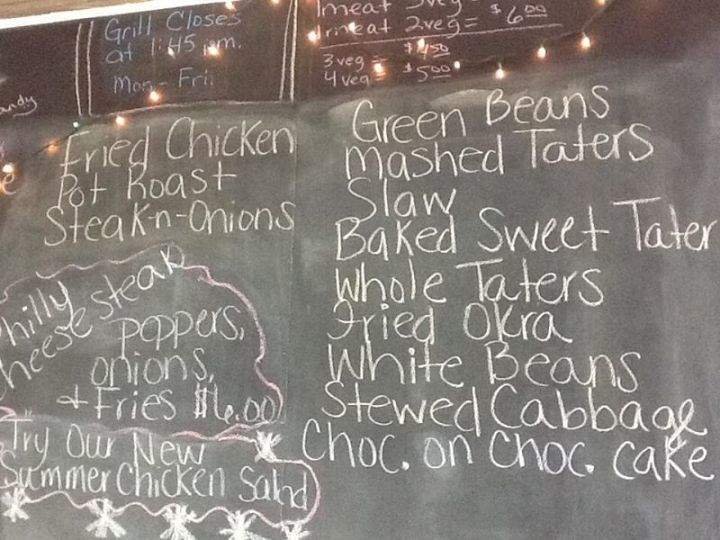 Grill Closes
at 1:45 pm.
Mon - Fri
1meat 3veg
1meat 2veg = $6.00
3 veg = $4.50
4 veg = $5.00
andy
Fried Chicken
Pot Roast
Steak-n-Onions
hilly
heese steak
peppers,
onions,
+ Fries $6.00
Try Our New
Summer Chicken Salad
Green Beans
Mashed Taters
Slaw
Baked Sweet Tater
Whole Taters
Fried Okra
White Beans
Stewed Cabbage
Choc. on Choc. cake